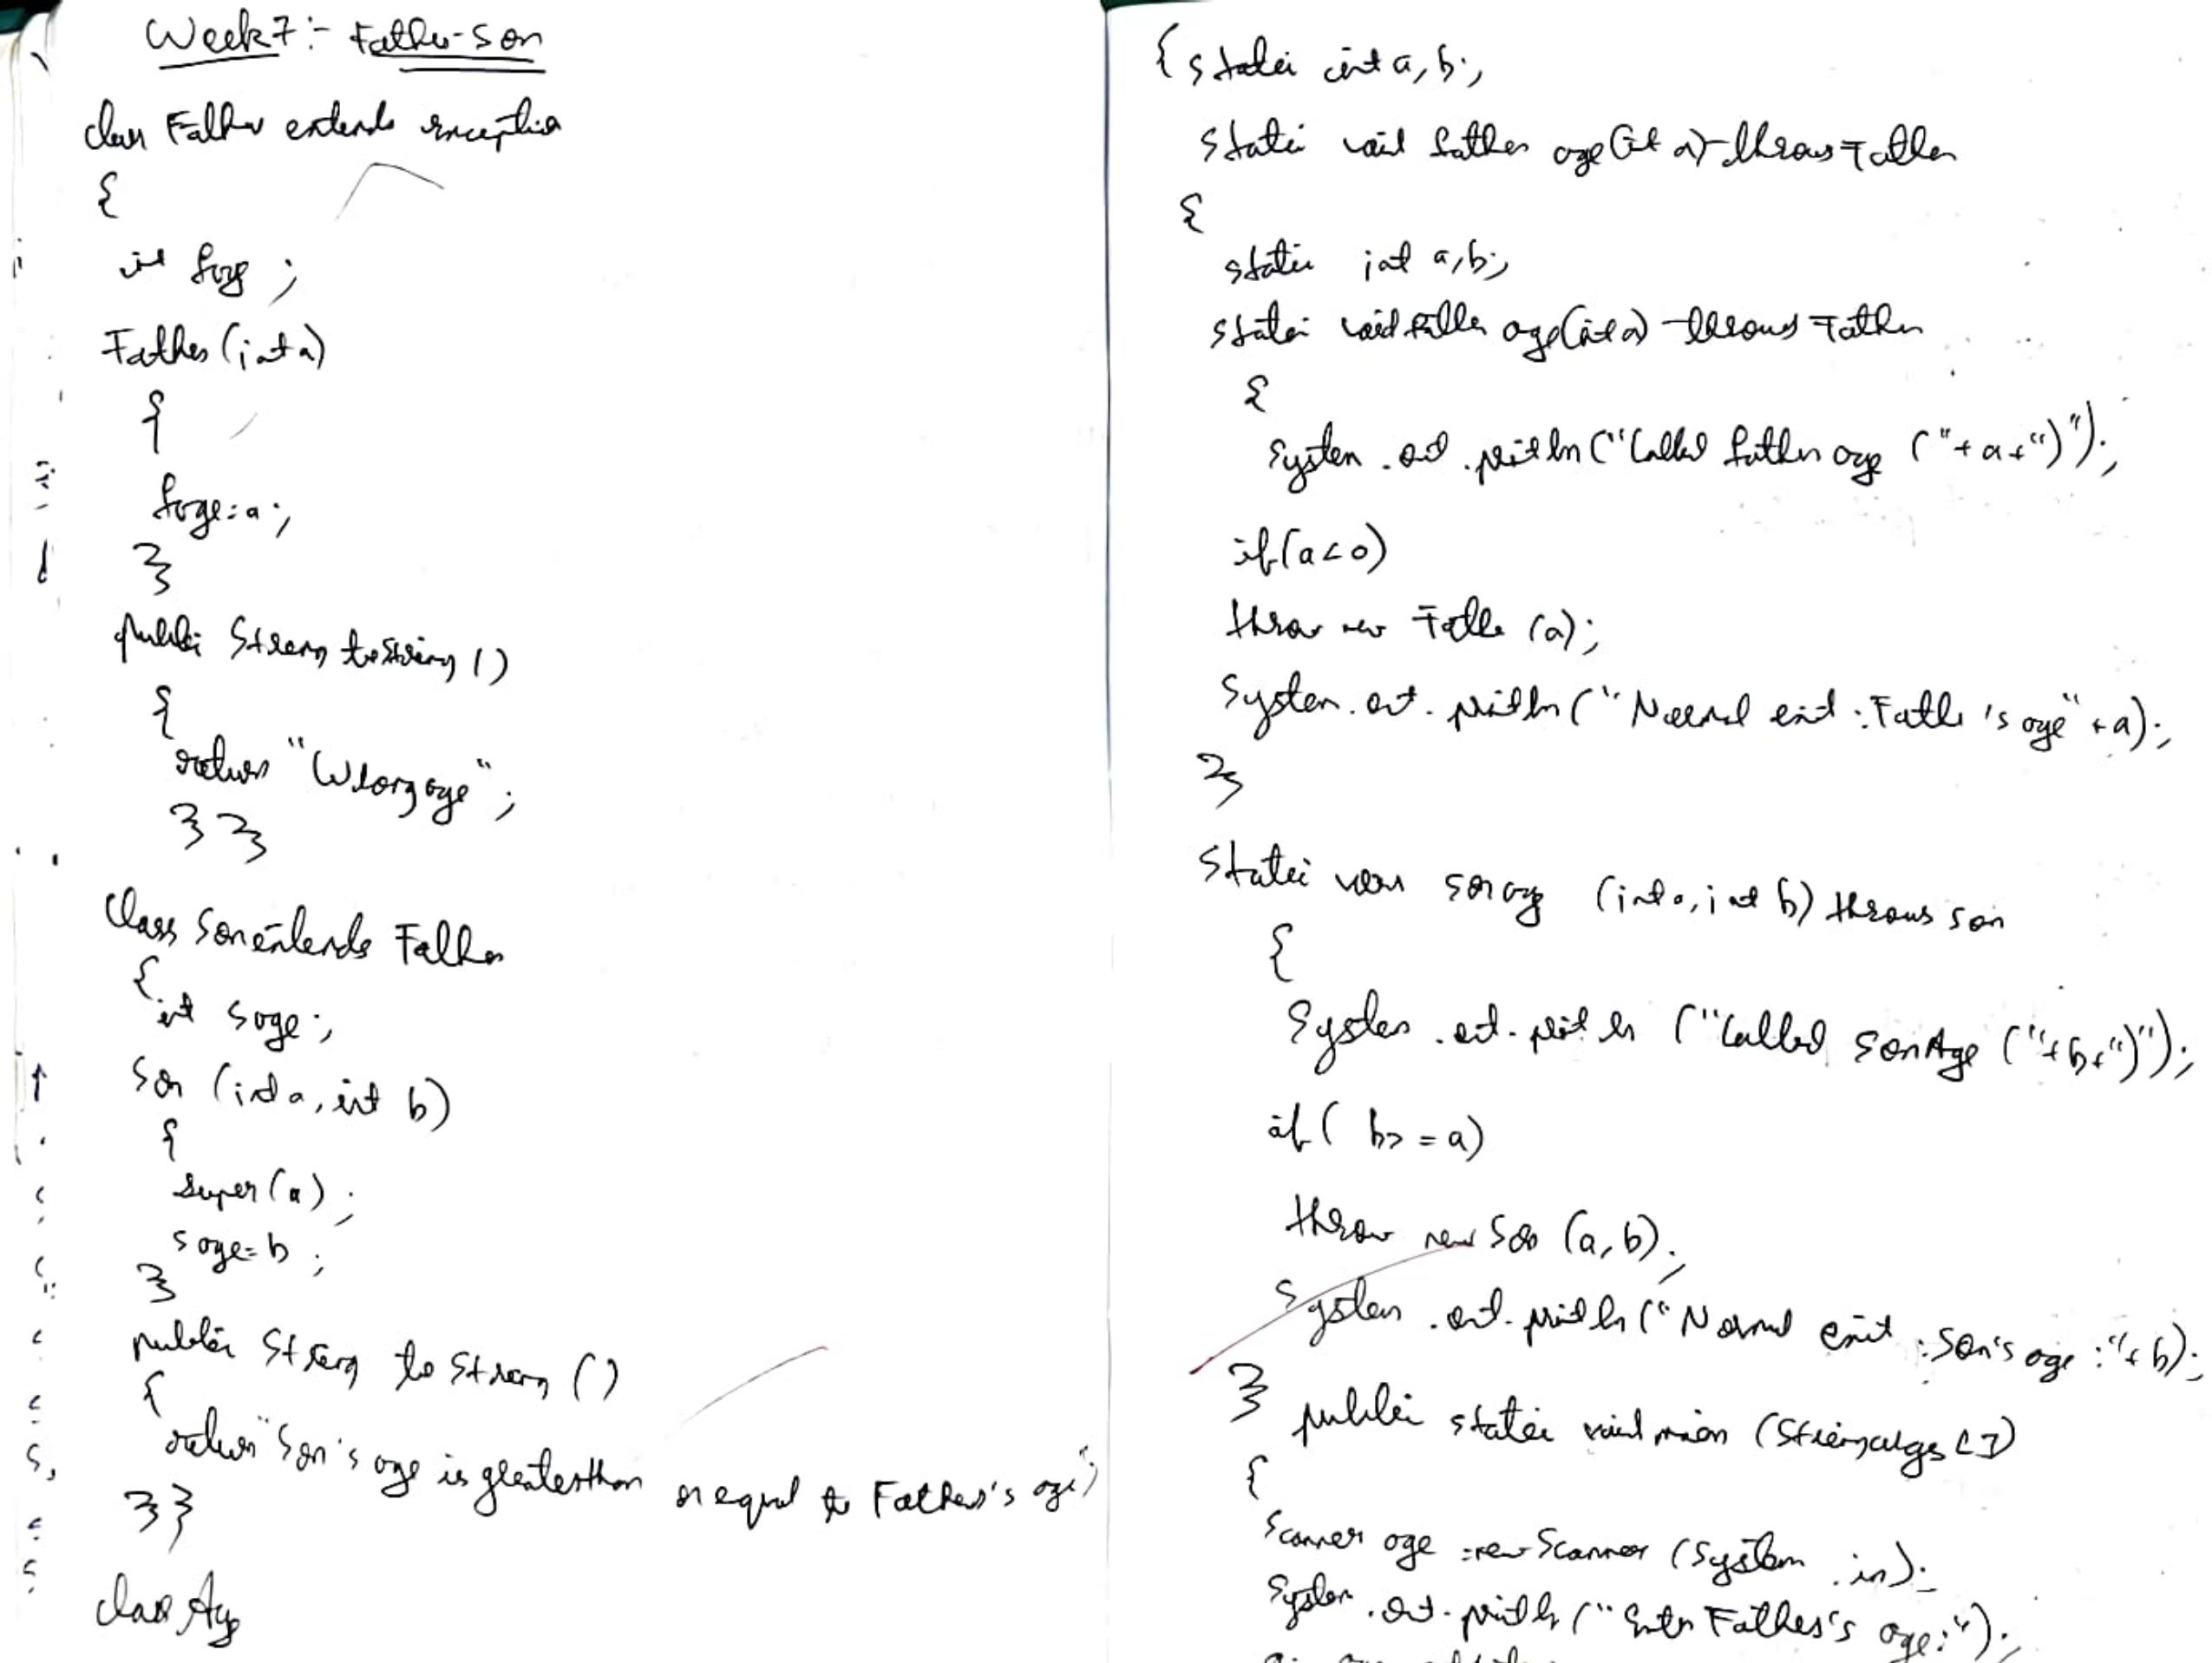 Week 7:- Father-Son
class Father extends exception
{
int fage ;
Father (int a)
{
fage=a;
}
public String toString ()
{
return "Wrong age";
}}
Class Son extends Father
{
int sage;
Son (int a, int b)
{
super(a) ;
sage=b ;
}
public String to String ()
{
return "Son's age is greater than or equal to Father's age";
}}
class Age
{ static int a, b;
static void father age (int a) throws Father
{
static int a, b;
static void father age(int a) throws Father
{
System .out .println ("Called father age ("+ a+")");
if (a<0)
throw new Father (a);
System. out. println (" Normal exit : Father 's age" +a);
}
static void son age (int a, int b) throws son
{
System .out. println ("Called SonAge ("+b+")");
if ( b> = a)
throw new Son (a, b);
System .out. println ("Normal exit :Son's age :"+ b);
}
public static void main (String args [])
{
Scanner age =new Scanner (System .in);
System .out. println (" Enter Father's age:");